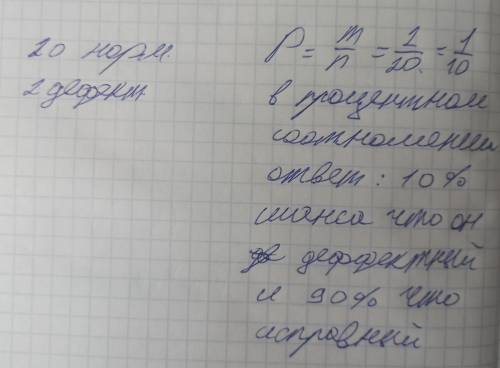 20 норм.
2 дефект
P = m/n = 2/20 = 1/10
в процентном
соотношении
ответ: 10%
шанса что он
деффектный
и 90% что
исправный